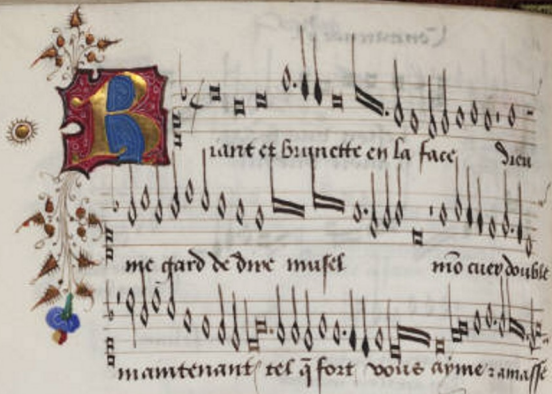 Riant et brunette en la face dieu
me gard de dire musel mõ cuer double
maintenant tel q̃ fort vous ayme ramasse